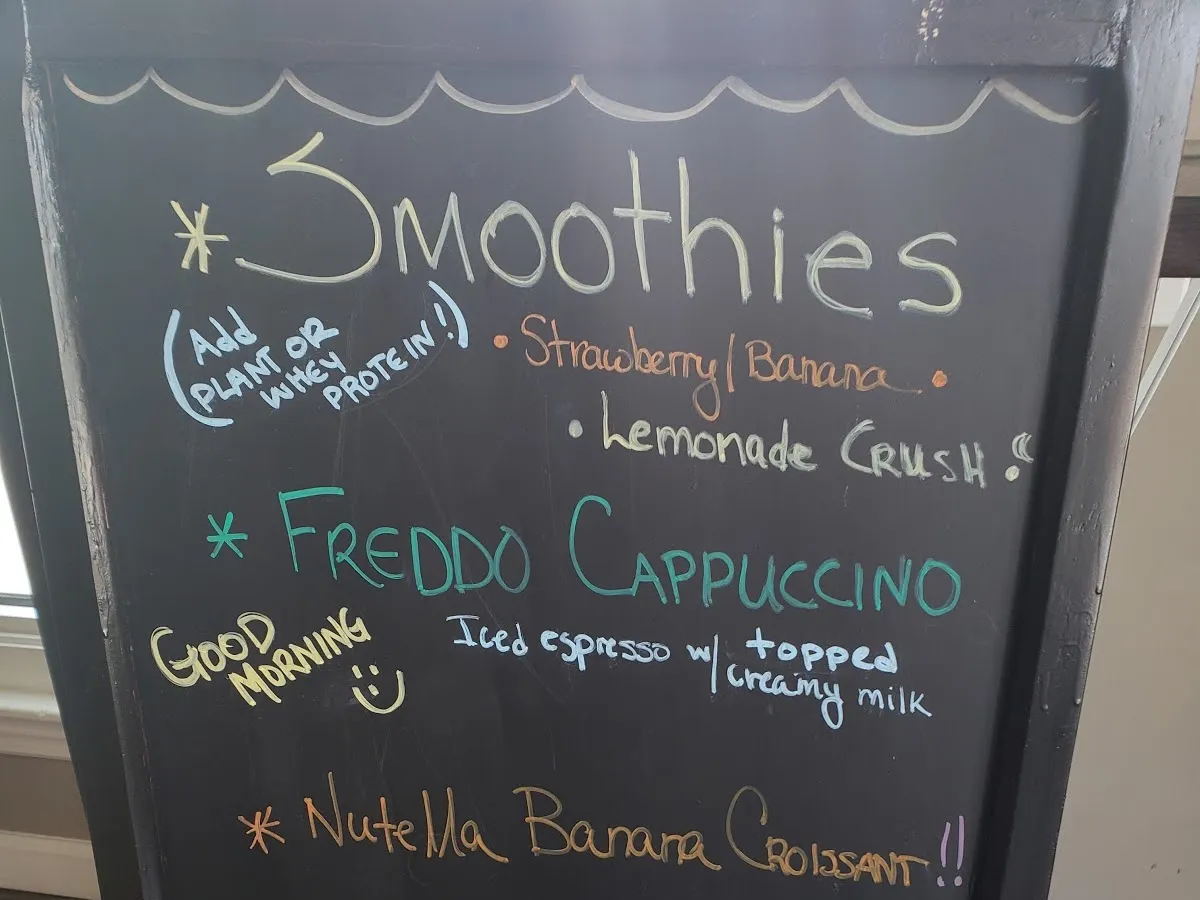 * Smoothies
(Add
PLANT OR
WHEY
PROTEIN!)
• Strawberry/Banana •
• Lemonade CRUSH!
* FREDDO CAPPUCCINO
GOOD
MORNING
Iced espresso w/ topped
creamy milk
* Nutella Banana CROISSANT!!